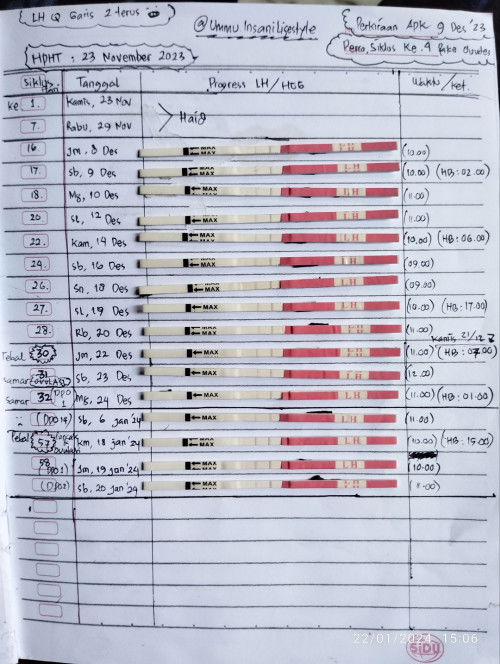 LH Q Garis 2 terus
@Ummu Insanilifestyle
Perkiraan Apk 9 Des '23
HPHT : 23 November 2023
Siklus Hari
Tanggal
Progress LH / HCG
Waktu / ket.
ke 1. Kamis, 23 Nov
7. Rabu, 29 Nov
Haid
16. Jm, 8 Des MAX LH (10.00)
17. Sb, 9 Des MAX LH (10.00) (HB : 02.00)
18. Mg, 10 Des MAX LH (11.00)
20. Sl, 12 Des MAX LH (11.00)
22. Kam, 14 Des MAX LH (10.00) (HB : 06.00)
24. Sb, 16 Des MAX LH (09.00)
26. Sn, 18 Des MAX LH (09.00)
27. Sl, 19 Des MAX LH (10.00) (HB : 17.00)
28. Rb, 20 Des MAX LH (11.00)
Kamis 21/12
Tebal 30 Jm, 22 Des MAX LH (11.00) (HB : 07.00)
Samar 31 Sb, 23 Des MAX LH (12.00)
Samar 32 (DPO 1) Mg, 24 Des MAX LH (11.00) (HB : 01.00)
(DPO 14) Sb, 6 Jan '24 MAX LH (11.00)
Tebal 57 Km, 18 Jan '24 MAX LH (10.00) (HB : 15.00)
58 (DPO 1) Jm, 19 Jan '24 MAX LH (10.00)
(DPO2) Sb, 20 Jan '24 MAX LH (11.00)
22/01/2024 15:06
SiDU